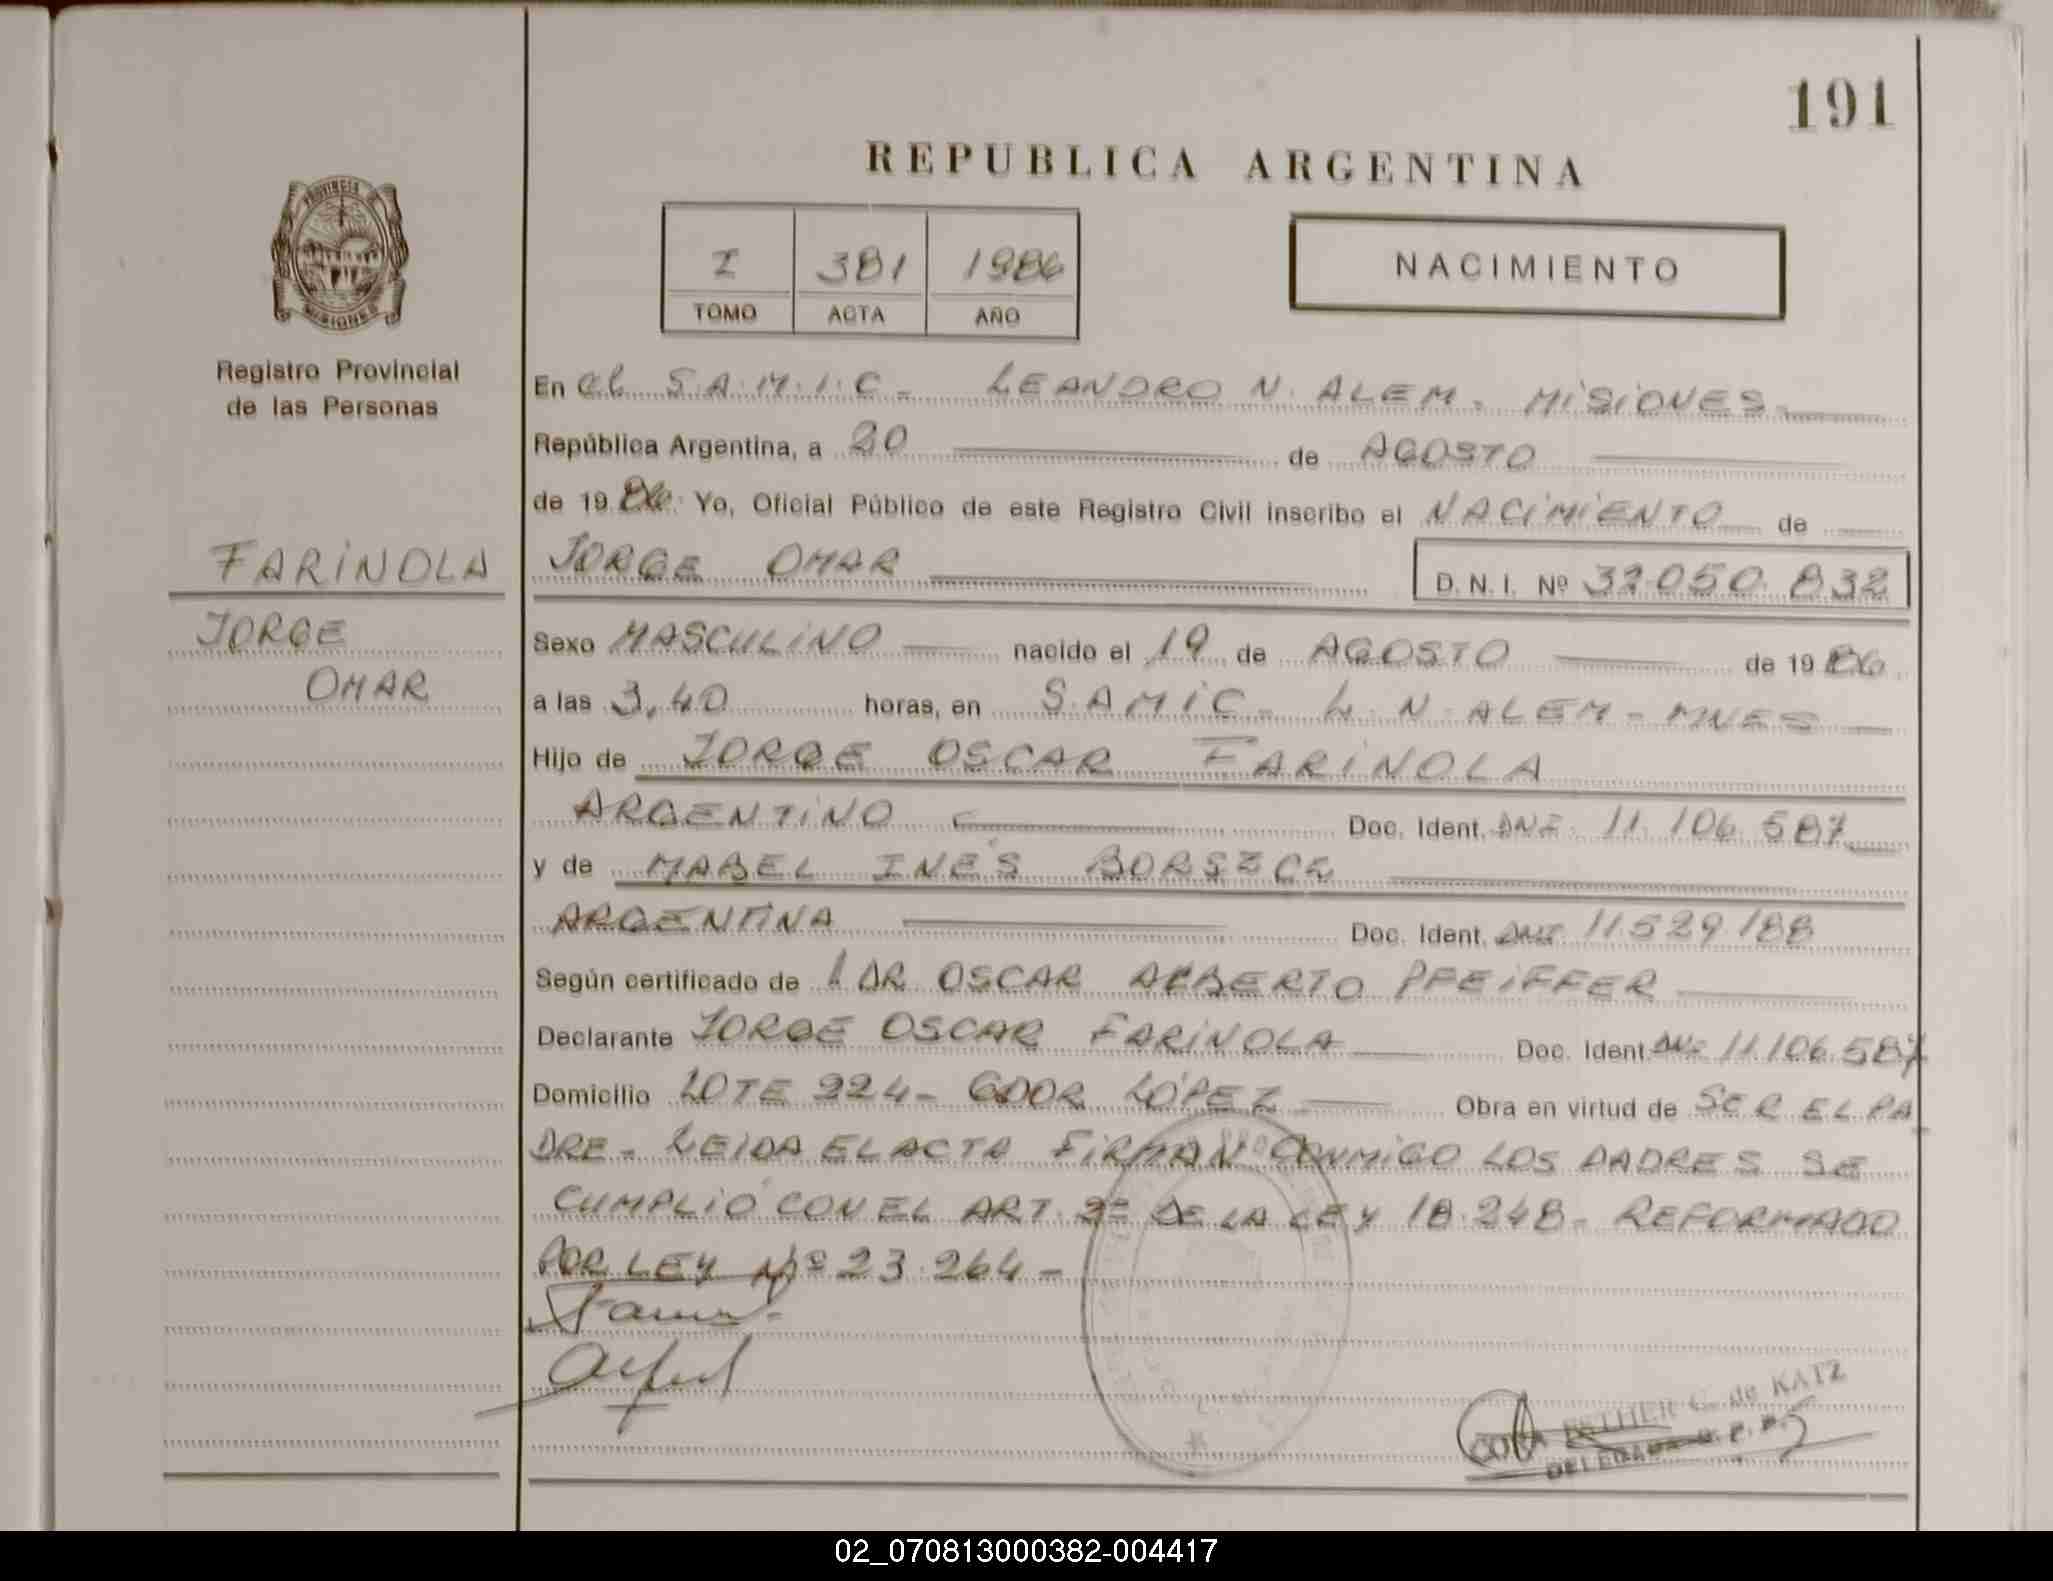 191
REPUBLICA ARGENTINA
PROVINCIA
MISIONES
Registro Provincial
de las Personas
I 381 1986
TOMO ACTA AÑO
NACIMIENTO
En el S.A.M.I.C. - LEANDRO N. ALEM. MISIONES-
República Argentina, a 20 de AGOSTO
de 1986. Yo, Oficial Público de este Registro Civil inscribo el NACIMIENTO de
FARINOLA
JORGE OMAR
D. N. I. Nº 32.050.832
JORGE
OMAR
Sexo MASCULINO nacido el 19 de AGOSTO de 1986
a las 3,40 horas, en S.A.M.I.C - L. N. ALEM - MNES
Hijo de JORGE OSCAR FARINOLA
ARGENTINO Doc. Ident. DNI 11.106.587
y de MABEL INÉS
ARGENTINA Doc. Ident. DNI 11529188
Según certificado de 1 DR OSCAR ALBERTO PFEIFFER
Declarante JORGE OSCAR FARINOLA Doc. Ident DNI 11.106.587
Domicilio LOTE 224 - GDOR LÓPEZ Obra en virtud de SER EL PA
DRE - LEIDA EL ACTA FIRMAN CONMIGO LOS PADRES SE
CUMPLIÓ CON EL ART. 2º DE LA LEY 18.248 - REFORMADO
POR LEY Nº 23.264 -
ESTHER C. de KATZ
DELEGADA R. P. P.
02_070813000382-004417